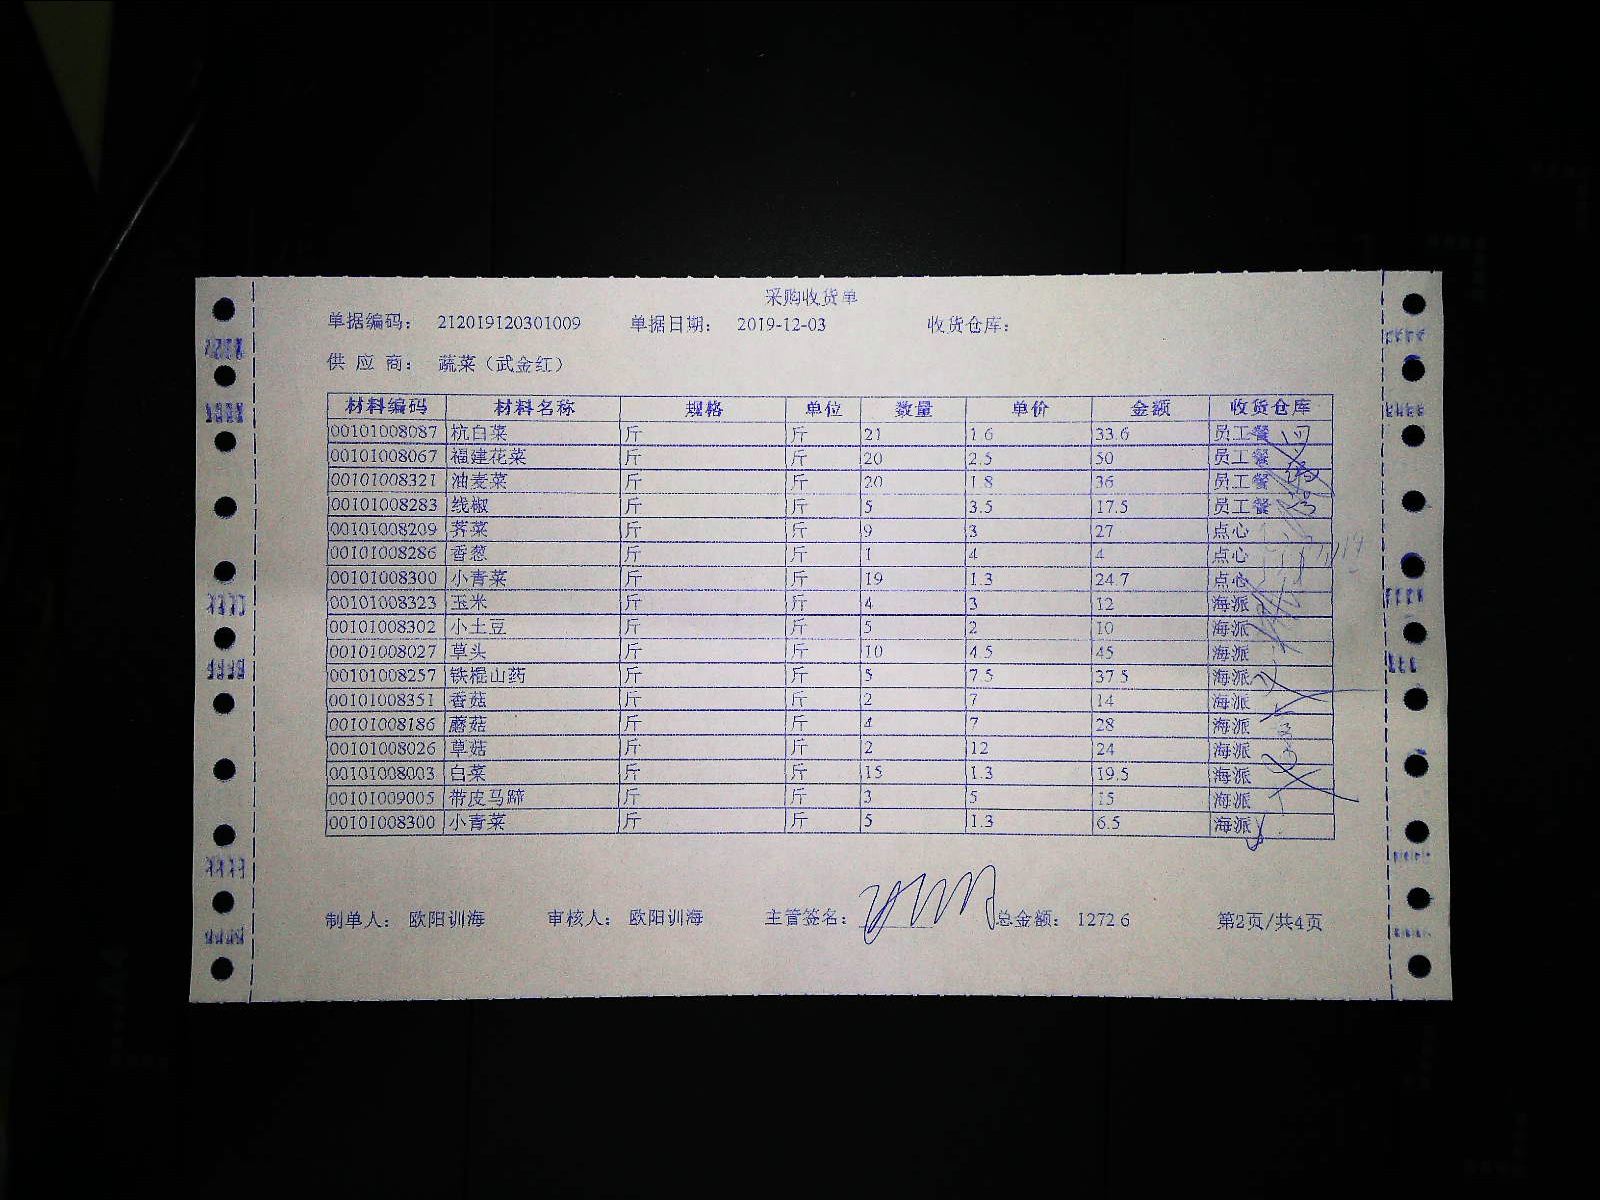 采购收货单
单据编码: 212019120301009 单据日期: 2019-12-03 收货仓库:
供 应 商: 蔬菜（武金红）
材料编码 材料名称 规格 单位 数量 单价 金额 收货仓库
00101008087 杭白菜 斤 斤 21 1.6 33.6 员工餐
00101008067 福建花菜 斤 斤 20 2.5 50 员工餐
00101008321 油麦菜 斤 斤 20 1.8 36 员工餐
00101008283 线椒 斤 斤 5 3.5 17.5 员工餐
00101008209 荠菜 斤 斤 9 3 27 点心
00101008286 香葱 斤 斤 1 4 4 点心
00101008300 小青菜 斤 斤 19 1.3 24.7 点心
00101008323 玉米 斤 斤 4 3 12 海派
00101008302 小土豆 斤 斤 5 2 10 海派
00101008027 草头 斤 斤 10 4.5 45 海派
00101008257 铁棍山药 斤 斤 5 7.5 37.5 海派
00101008351 香菇 斤 斤 2 7 14 海派
00101008186 蘑菇 斤 斤 4 7 28 海派
00101008026 草菇 斤 斤 2 12 24 海派
00101008003 白菜 斤 斤 15 1.3 19.5 海派
00101009005 带皮马蹄 斤 斤 3 5 15 海派
00101008300 小青菜 斤 斤 5 1.3 6.5 海派
制单人: 欧阳训海 审核人: 欧阳训海 主管签名: 总金额: 1272.6 第2页/共4页